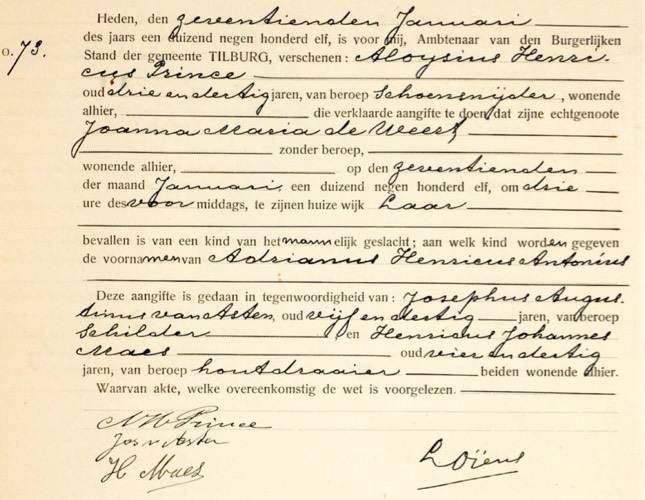 Heden, den zeventienden Januari
o. 73. des jaars een duizend negen honderd elf, is voor mij, Ambtenaar van den Burgerlijken
Stand der gemeente TILBURG, verschenen: Aloysius Henri-
cus Prince
oud drie en dertig jaren, van beroep Schoensnijder, wonende
alhier, die verklaarde aangifte te doen dat zijne echtgenoote
Joanna Maria de Weert
zonder beroep,
wonende alhier, op den zeventienden
der maand Januari, een duizend negen honderd elf, om drie
ure des voor middags, te zijnen huize wijk Laar
bevallen is van een kind van het mannelijk geslacht; aan welk kind worden gegeven
de voornamen van Adrianus Henricus Antonius
Deze aangifte is gedaan in tegenwoordigheid van: Josephus Augus-
tinus van Asten, oud vijf en dertig jaren, van beroep
Schilder en Henricus Johannes
Maes oud vier en dertig
jaren, van beroep houtdraaier beiden wonende alhier.
Waarvan akte, welke overeenkomstig de wet is voorgelezen.
Prince
Jos v Asten
H Maes